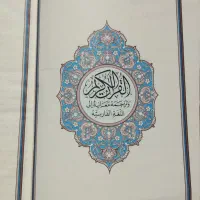 القرآن الكريم
وترجمة معانيه إلى
اللغة الفارسية